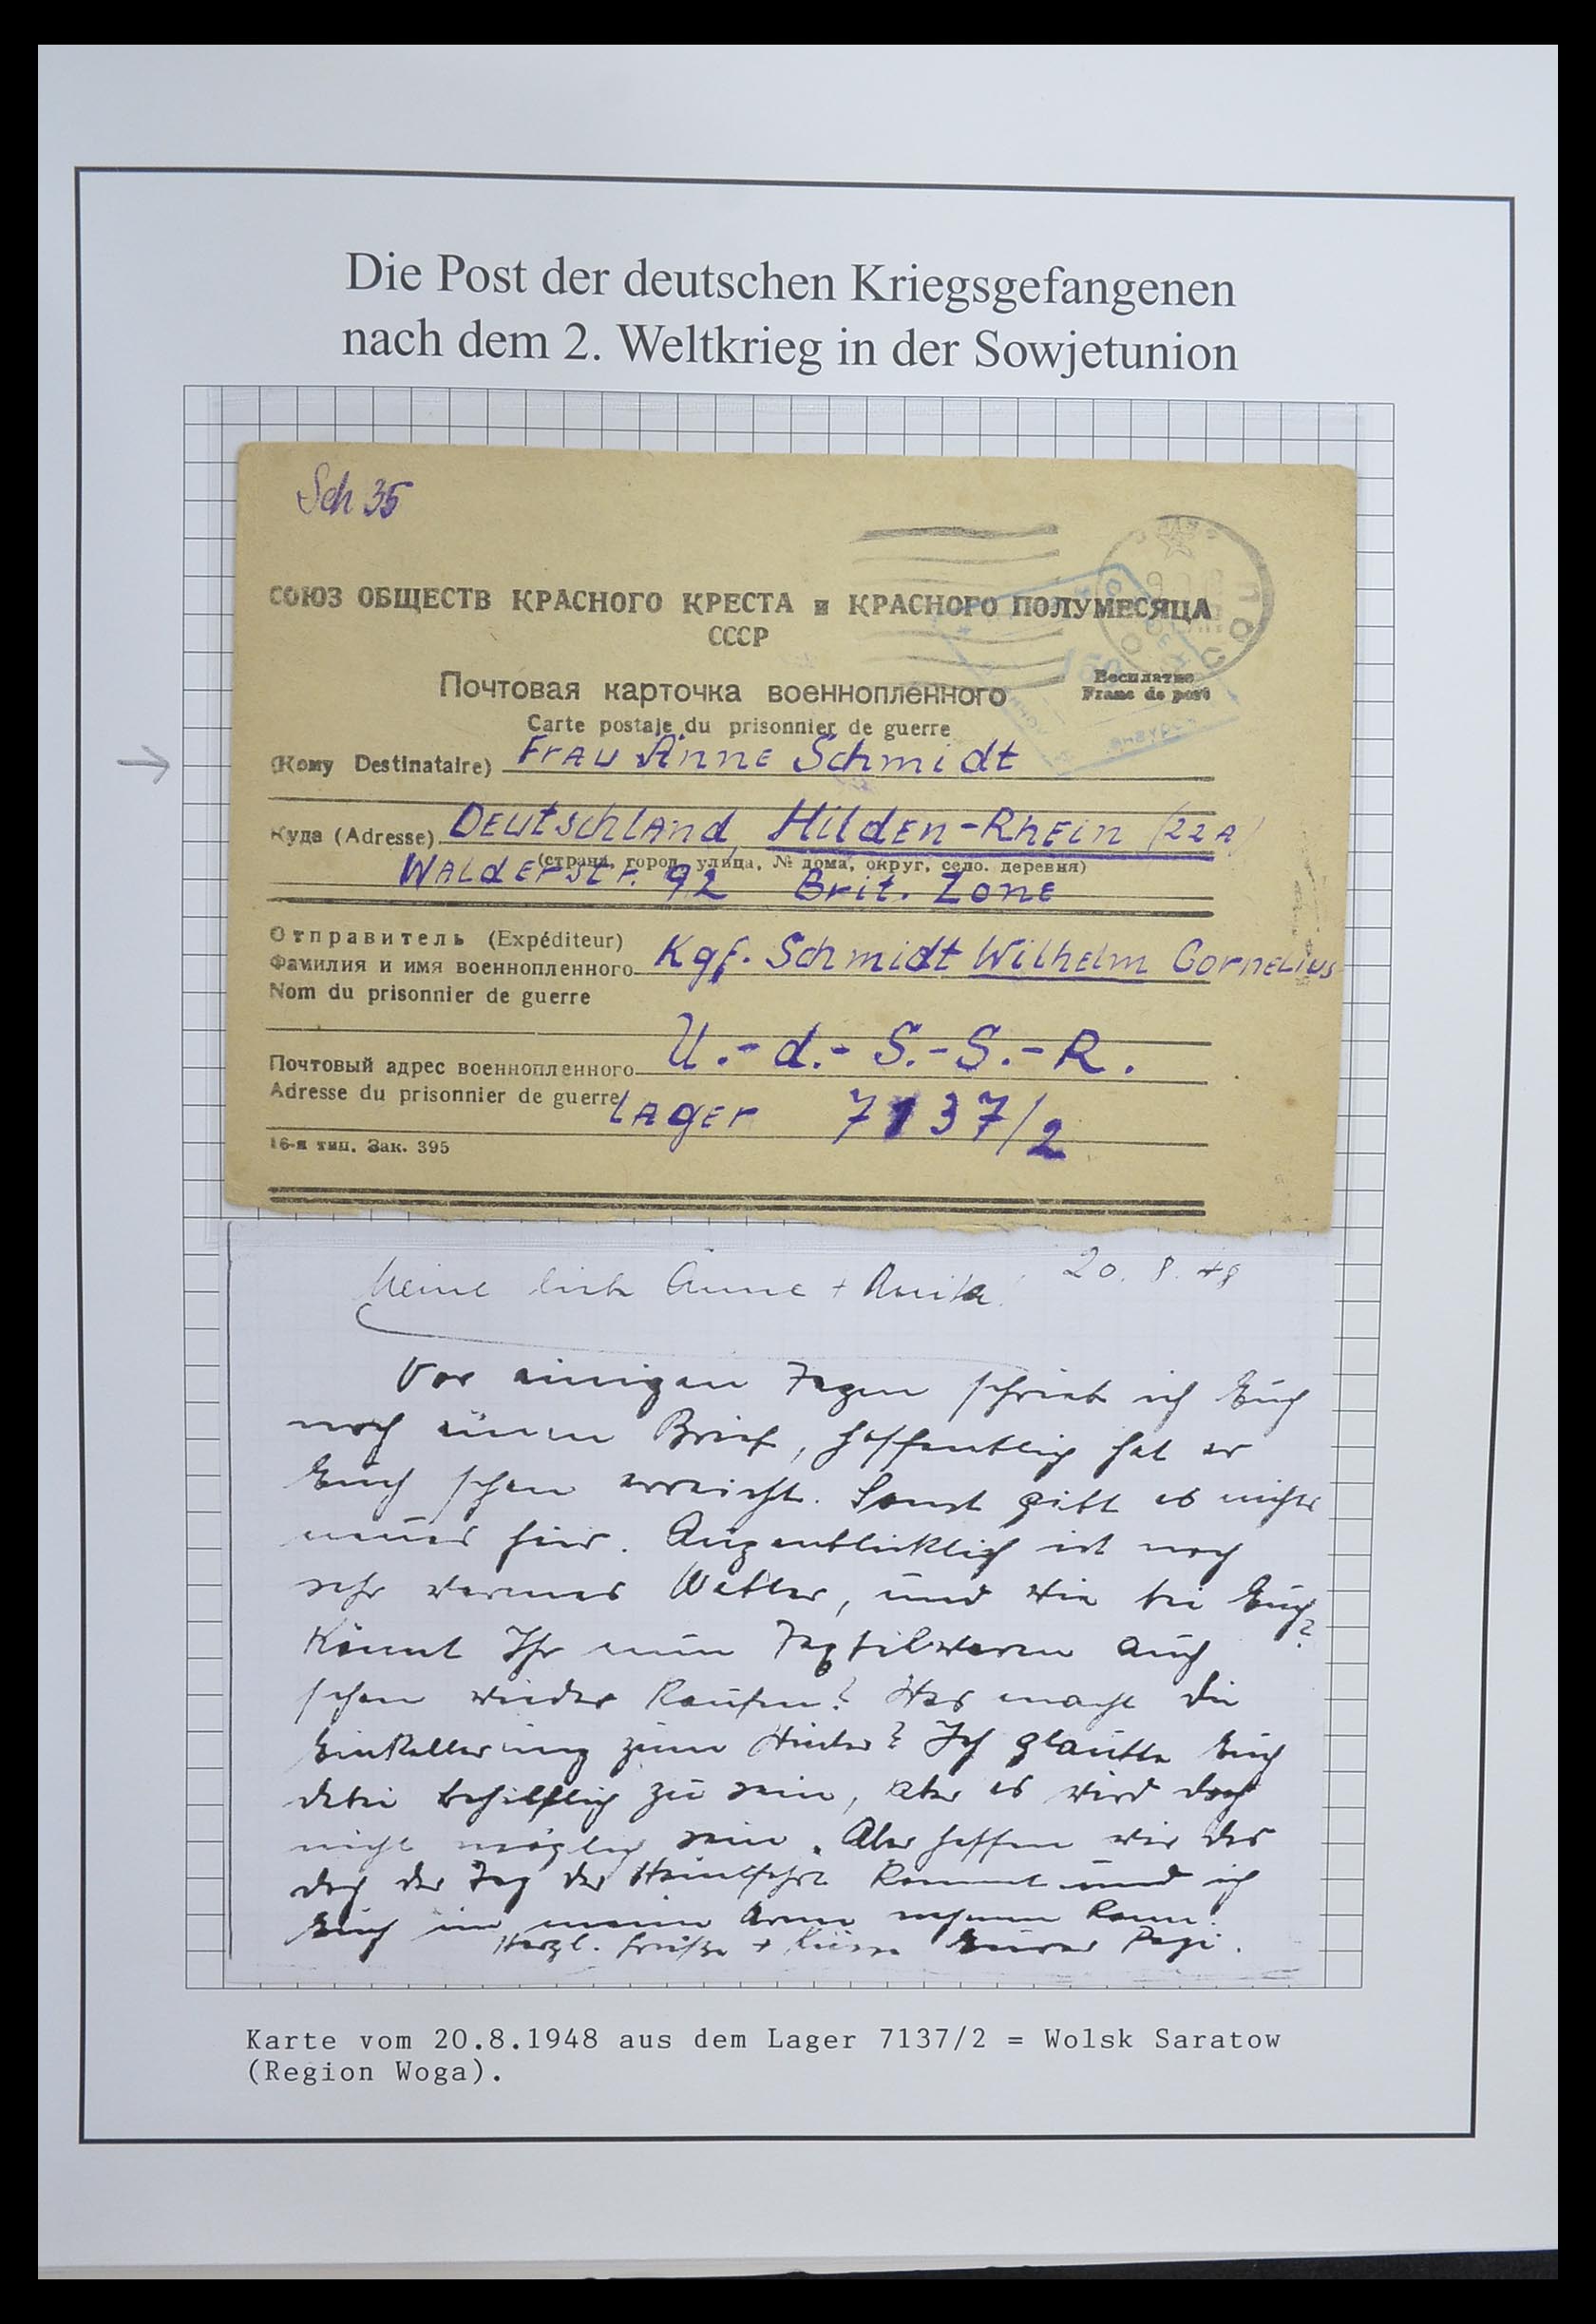 Die Post der deutschen Kriegsgefangenen
nach dem 2. Weltkrieg in der Sowjetunion
Sch 35
СОЮЗ ОБЩЕСТВ КРАСНОГО КРЕСТА и КРАСНОГО ПОЛУМЕСЯЦА
СССР
Почтовая карточка военнопленного
Бесплатно
Franc de port
Carte postale du prisonnier de guerre
(Кому Destinataire) Frau Änne Schmidt
Куда (Adresse) Deutschland, Hilden-Rhein (22A)
(страна, город, улица, № дома, округ, село, деревня)
Walderstr. 92 Brit. Zone
Отправитель (Expéditeur)
Фамилия и имя военнопленного Kgf. Schmidt Wilhelm Cornelius
Nom du prisonnier de guerre
U.-d.-S.-S.-R.
Почтовый адрес военнопленного
Adresse du prisonnier de guerre Lager 7137/2
16-я тип. Зак. 395
Meine lieb Änne + Anita! 20. 8. 48
Vor einigen Tagen schrieb ich Euch
noch einen Brief, hoffentlich hat er
Euch schon erreicht. Sonst gibt es nichts
neues hier. Augenblicklich ist noch
sehr warmes Wetter, und wie bei Euch?
Könnt Ihr nun Textilwaren auch
schon wieder kaufen? Was macht die
Einkellerung zum Winter? Ich glaubte Euch
dabei behilflich zu sein, aber es wird doch
nicht möglich sein. Aber hoffen wir das
doch der Tag der Heimfahrt kommt und ich
Euch in meine Arme nehmen kann.
Herzl. Grüße + Küsse Eurer Papi.
Karte vom 20.8.1948 aus dem Lager 7137/2 = Wolsk Saratow
(Region Woga).